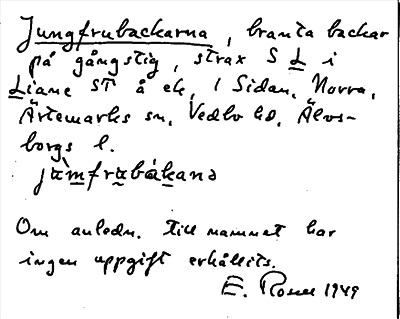 Jungfrubackarna, branta backar
på gångstig, strax S L i
Liane ST å ek, 1 Sidan, Norra,
Ärtemarks sn, Vedbo hd, Älvs-
borgs l.
Om anledn. till namnet har
ingen uppgift erhållits.
E. Rosell 1949